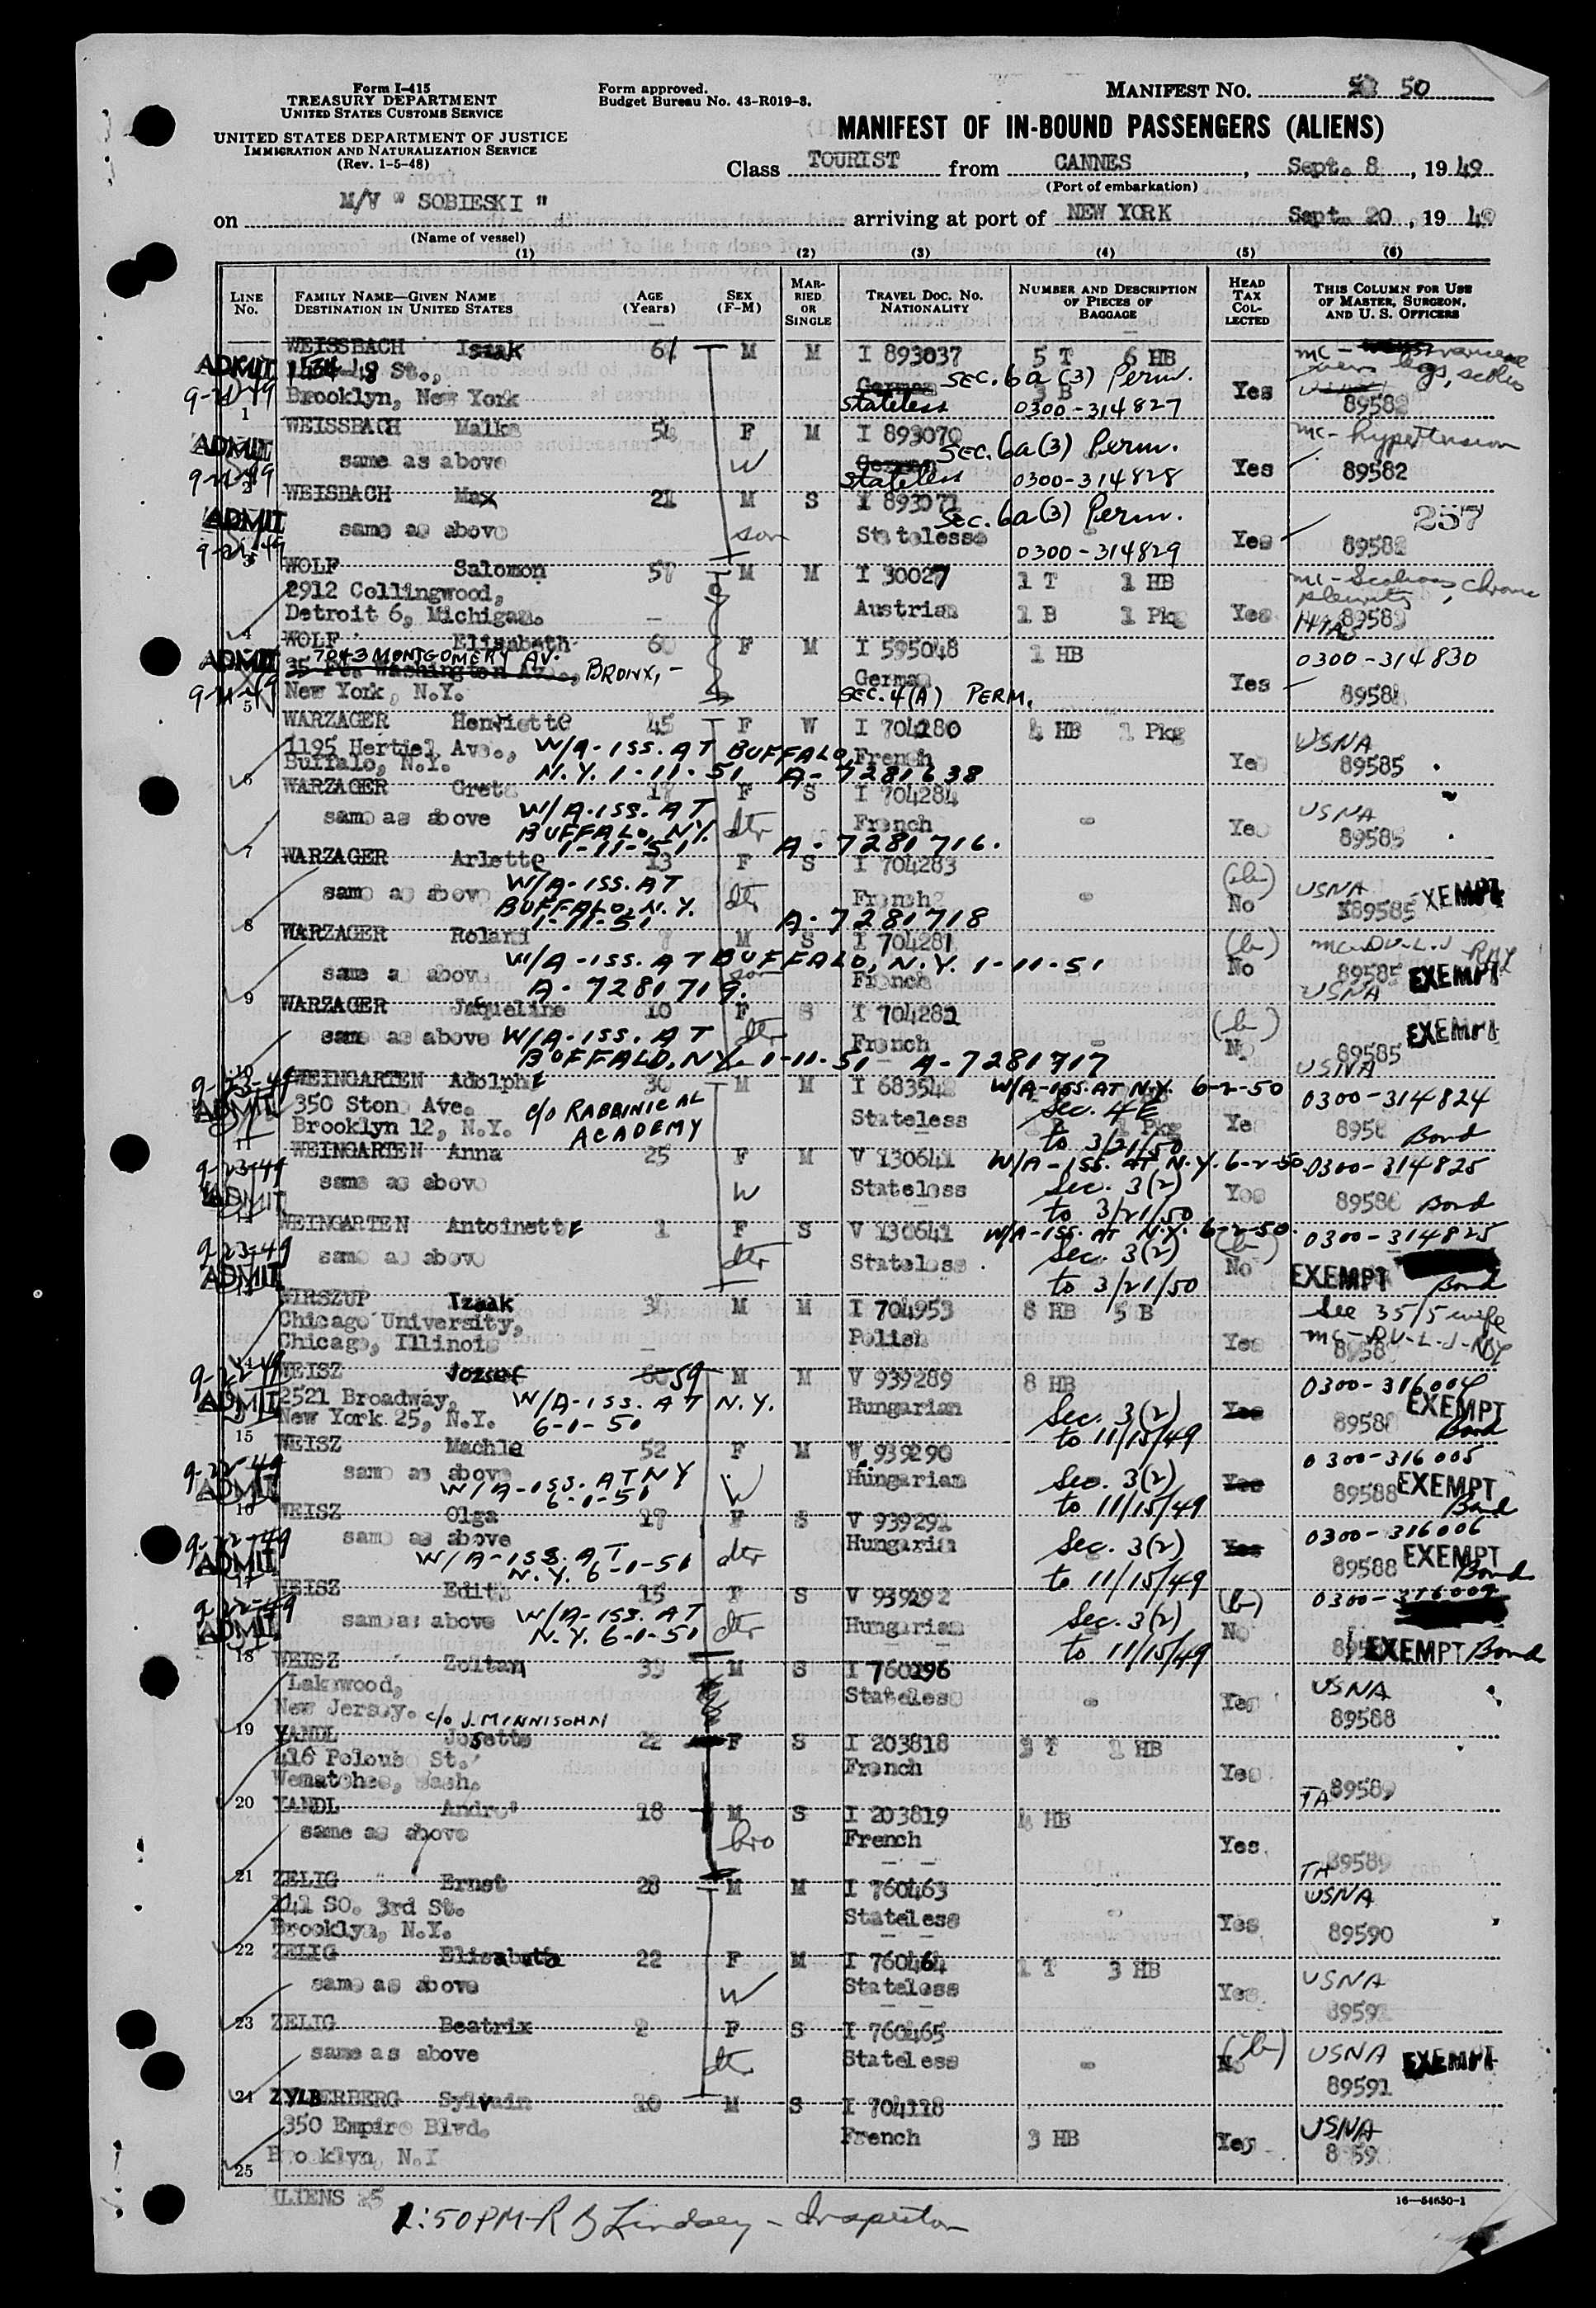 Form I-415
TREASURY DEPARTMENT
UNITED STATES CUSTOMS SERVICE
UNITED STATES DEPARTMENT OF JUSTICE
IMMIGRATION AND NATURALIZATION SERVICE
(Rev. 1-5-48)
Form approved.
Budget Bureau No. 43-R019-3.
MANIFEST NO. 50
MANIFEST OF IN-BOUND PASSENGERS (ALIENS)
Class TOURIST from CANNES, Sept. 8, 1949
(Port of embarkation)
on M/V "SOBIESKI" arriving at port of NEW YORK Sept. 20, 1949
(Name of vessel)
(1) (2) (3) (4) (5) (6)
LINE NO.
FAMILY NAME—GIVEN NAME
DESTINATION IN UNITED STATES
AGE (Years)
SEX (F-M)
MARRIED OR SINGLE
TRAVEL DOC. NO.
NATIONALITY
NUMBER AND DESCRIPTION OF PIECES OF BAGGAGE
HEAD TAX COLLECTED
THIS COLUMN FOR USE OF MASTER, SURGEON, AND U. S. OFFICERS
WEISSBACH Isaak 61 M M I 893037 5 T 6 HB
ADMIT St., German Sec. 6a(3) Perm. 3 B
Brooklyn, New York Stateless 0300-314827 Yes
1
WEISSBACH Malka 54 F M I 893070 mc- hypertension
ADMIT same as above W German Stateless Sec. 6a(3) Perm. 0300-314828 Yes 89582
2
WEISBACH Max 21 M S I 893071 257
ADMIT same as above son Stateless Sec. 6a(3) Perm. 0300-314829 Yes 89582
3
WOLF Salomon 57 M M I 30027 1 T 1 HB
2912 Collingwood,
Detroit 6, Michigan. Austrian 1 B 1 Pkg Yes
4
WOLF Elisabeth 60 F M I 595048 1 HB 0300-314830
ADMIT 7043 MONTGOMERY AV. BRONX,
New York, N.Y. German SEC. 4(A) PERM. Yes
5
WARZAGER Henriette 45 F W I 704280 4 HB 1 Pkg USNA
1195 Hertiel Ave., W/A-ISS. AT BUFFALO, French
Buffalo, N.Y. N.Y. 1-11-51 A-7281638 Yes 89585
6
WARZAGER Greta 17 F S I 704284 USNA
same as above W/A-ISS. AT BUFFALO, NY. 1-11-51 dtr French A-7281716. Yes 89585
7
WARZAGER Arlette 13 F S I 704283
same as above W/A-ISS. AT BUFFALO, N.Y. 1-11-51 dtr French A-7281718 No USNA 89585 EXEMPT
8
WARZAGER Roland 7 M S I 704281
same as above W/A-ISS. AT BUFFALO, N.Y. 1-11-51 A-7281719. son French No 89585 EXEMPT USNA
9
WARZAGER Jaqueline 10 F S I 704282
same as above W/A-ISS. AT BUFFALO, NY 1-11-51 A-7281717 dtr French No 89585 EXEMPT USNA
10
9-23-49 WEINGARTEN Adolphe 30 M M I 683542 W/A-ISS. AT N.Y. 6-2-50 0300-314824
ADMIT 350 Stone Ave. c/o RABBINICAL ACADEMY
Brooklyn 12, N.Y. Stateless Sec. 4E to 3/21/50 Yes Bond
11
9-23-49 WEINGARTEN Anna 25 F M V 130641 W/A-ISS. AT N.Y. 6-2-50 0300-314825
ADMIT same as above W Stateless Sec. 3(2) to 3/21/50 Yes 89586 Bond
WEINGARTEN Antoinette 1 F S V 130641 W/A-ISS. AT N.Y. 6-2-50. 0300-314825
9-23-49 ADMIT same as above dtr Stateless Sec. 3(2) to 3/21/50 No EXEMPT Bond
WIRSZUP Izaak M M I 704953 8 HB 5 B See 35/5 wife
Chicago University,
Chicago, Illinois Polish Yes
WEISZ Jozsef 59 M M V 939289 8 HB 0300-316004
ADMIT 2521 Broadway, W/A-ISS. AT N.Y. 6-1-50
New York 25, N.Y. Hungarian Sec. 3(2) to 11/15/49 Yes EXEMPT Bond
15
WEISZ Machle 52 F M V 939290 0300-316005
9-22-49 ADMIT same as above W/A-ISS. AT NY 6-1-50 W Hungarian Sec. 3(2) to 11/15/49 Yes 89588 EXEMPT Bond
WEISZ Olga 17 F S V 939291 0300-316006
9-22-49 ADMIT same as above W/A-ISS. AT N.Y. 6-1-50 dtr Hungarian Sec. 3(2) to 11/15/49 Yes 89588 EXEMPT Bond
WEISZ Edith 15 F S V 939292
9-22-49 ADMIT same as above W/A-ISS. AT N.Y. 6-1-50 dtr Hungarian Sec. 3(2) to 11/15/49 No EXEMPT Bond
18
WEISZ Zoltan 39 M S I 760296 USNA
Lakewood,
New Jersey. c/o J. MINNISOHN Stateless Yes 89588
19
YANDL Josette 22 F S I 203818 3 T 1 HB
416 Polous St.
Wenatchee, Wash. French Yes TA 89589
20
YANDL Andre 18 M S I 203819 4 HB
same as above bro French Yes TA 89589
21
ZELIG Ernst 28 M M I 760463 USNA
141 SO. 3rd St.
Brooklyn, N.Y. Stateless Yes 89590
22
ZELIG Elisabeta 22 F M I 760464 1 T 3 HB USNA
same as above W Stateless Yes
23
ZELIG Beatrix 2 F S I 760465
same as above dtr Stateless No USNA EXEMPT 89591
24
ZYLBERBERG Sylvain M S I 704118 USNA
350 Empire Blvd. French 3 HB Yes
Brooklyn N.Y
25
ALIENS 25
1:50 PM - R B Lindsey - Inspector
16—54650-1